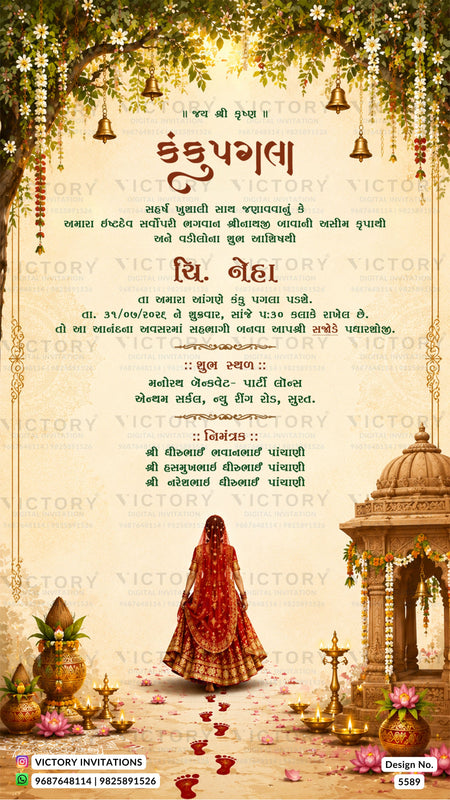 ॥ જય શ્રી કૃષ્ણ ॥
કંકુપગલા
સહર્ષ ખુશાલી સાથ જણાવવાનું કે
અમારા ઈષ્ટદેવ સર્વોપરી ભગવાન શ્રીનાથજી બાવાની અસીમ કૃપાથી
અને વડીલોના શુભ આશિષથી
ચિ. નેહા
તા અમારા આંગણે કંકુ પગલા પડશે.
તા. ૩૧/૦૭/૨૦૨૬ ને શુક્રવાર, સાંજે ૫:૩૦ કલાકે રાખેલ છે.
તો આ આનંદના અવસરમાં સહભાગી બનવા આપશ્રી સજોડે પધારશોજી.
:: શુભ સ્થળ ::
મનોરથ બેંન્કવેટ- પાર્ટી લોન્સ
એન્થમ સર્કલ, ન્યુ રીંગ રોડ, સુરત.
:: નિમંત્રક ::
શ્રી ધીરુભાઈ ભવાનભાઈ પાંચાણી
શ્રી હસમુખભાઈ ધીરુભાઈ પાંચાણી
શ્રી નરેશભાઈ ધીરુભાઈ પાંચાણી
VICTORY
DIGITAL INVITATION
9687648114 | 9825891526
VICTORY INVITATIONS
9687648114 | 9825891526
Design No.
5589